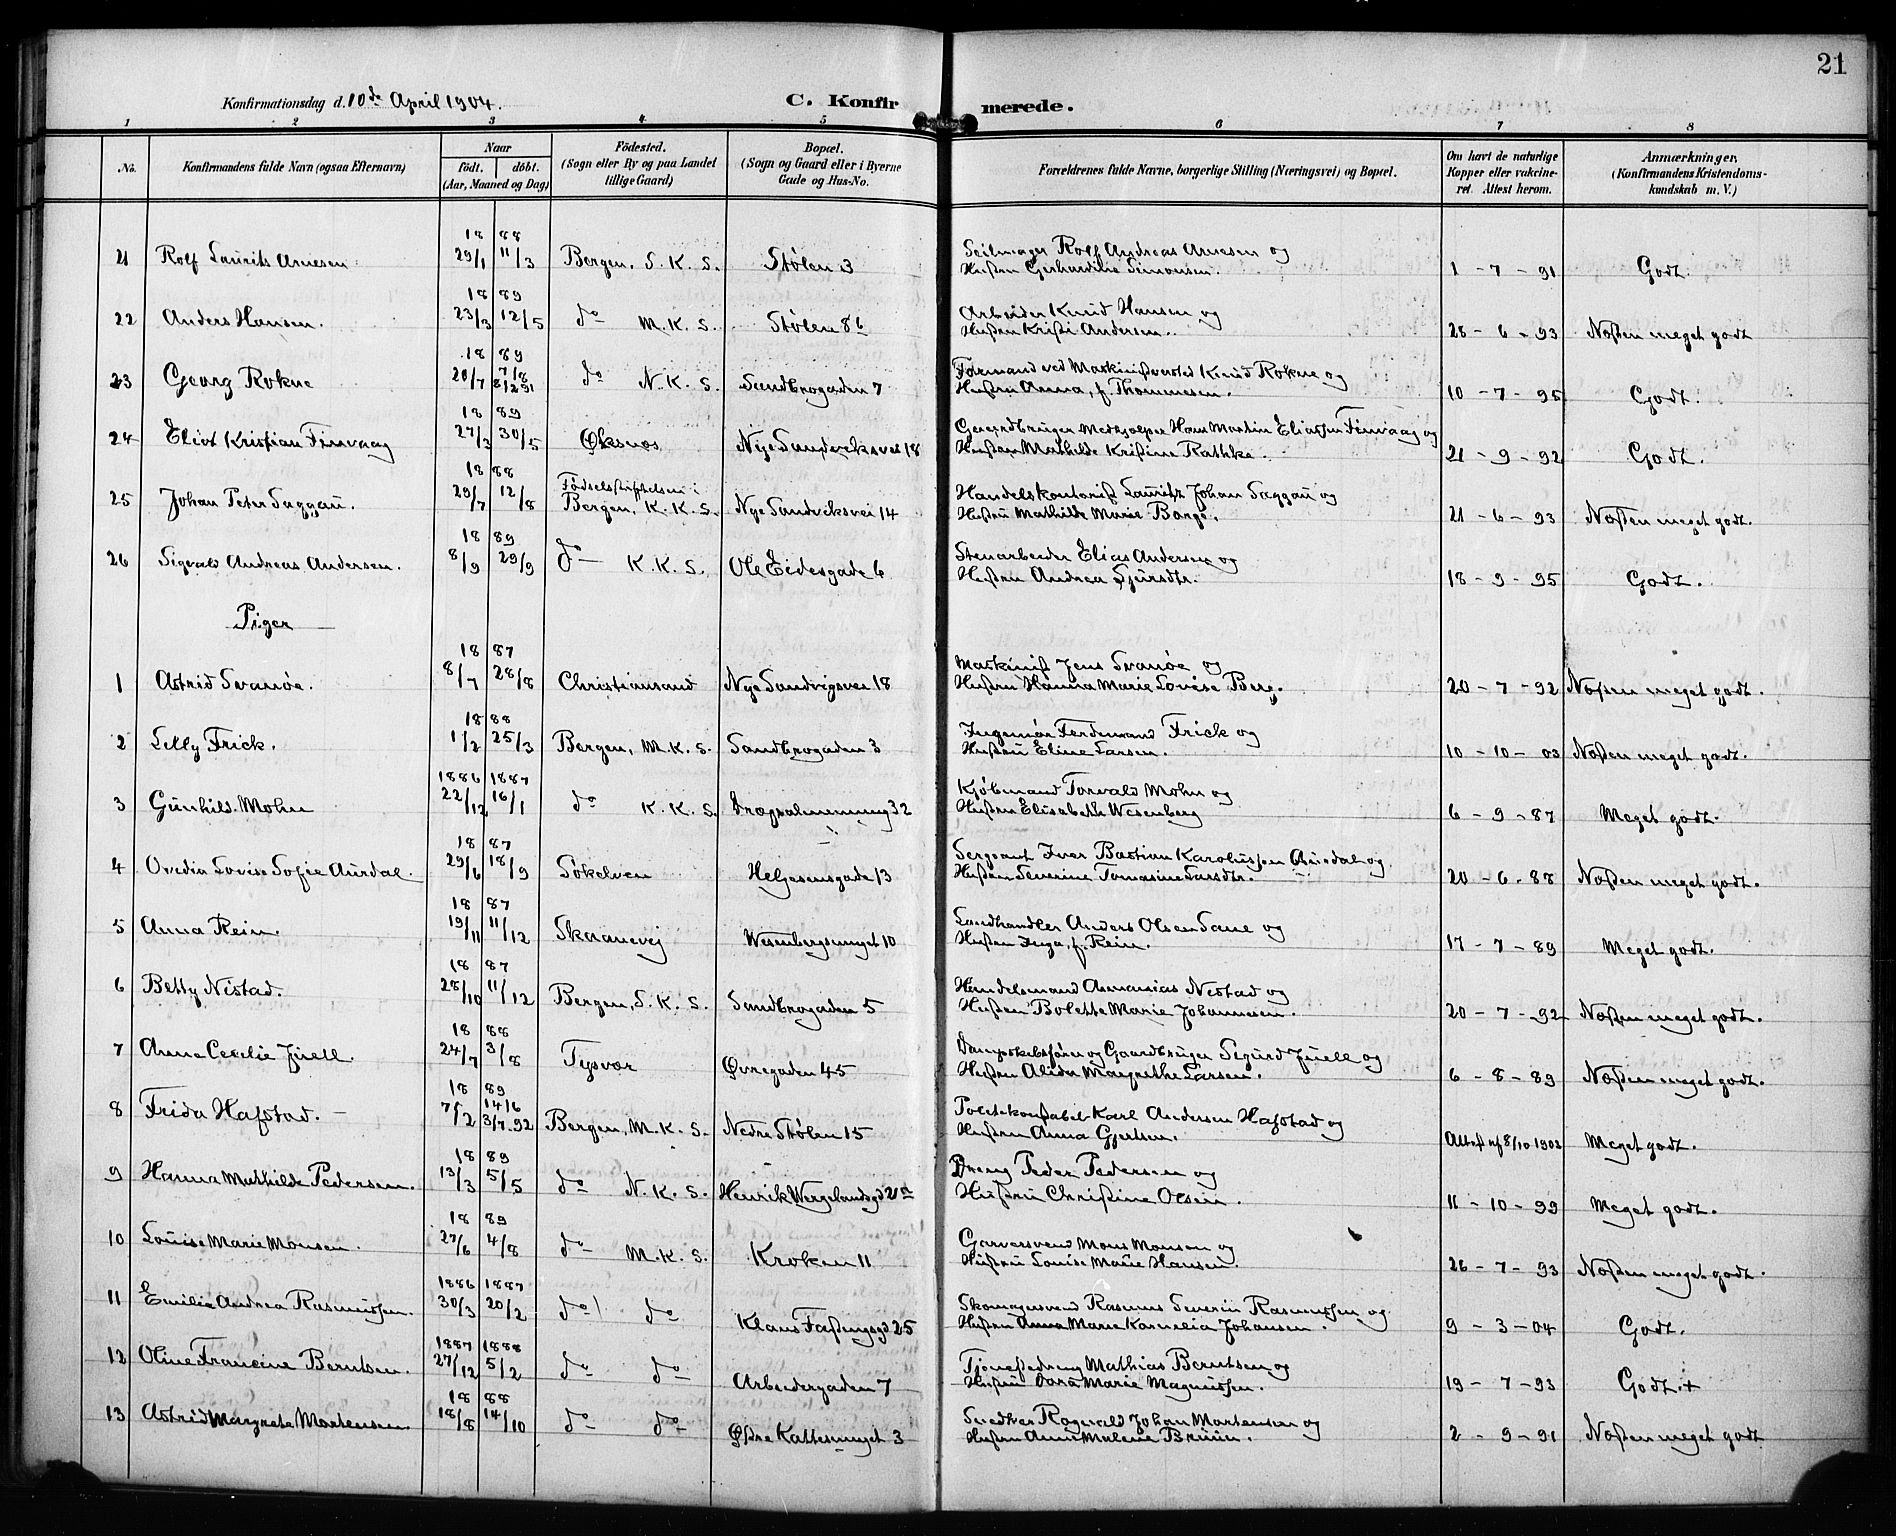 21
Konfirmationsdag d. 10de April 1904.
C. Konfirmerede.
1 2 3 4 5 6 7 8
No.
Konfirmandens fulde Navn (ogsaa Efternavn)
Naar
født. døbt.
(Aar, Maaned og Dag)
Fødested.
(Sogn eller By og paa Landet
tillige Gaard)
Bopæl.
(Sogn og Gaard eller i Byerne
Gade og Hus-No.
Forældrenes fulde Navne, borgerlige Stilling (Næringsvei) og Bopæl.
Om havt de naturlige
Kopper eller vakcine-
ret. Attest herom.
Anmærkninger,
(Konfirmandens Kristendoms-
kundskab m. V.)
18 88
21 Rolf Laurits Arnesen 29/1 11/3 Bergen, S. K. S. Stølen 3 Seilmager Rolf Andreas Arnesen og
Hustru Gerhardine Simonsen. 1 - 7 - 91 Godt.
18 89
22 Anders Hansen. 23/3 12/5 do M. K. S. Stølen 8b Arbeider Knud Hansen og
Hustru Kristi Andersen. 28 - 6 - 93 Næsten meget godt
18 89
23 Georg Rokne 20/7 7/8 8/2 91 do N. K. S. Sandbrogaden 7 Formand ved Knud Rokne og
Hustru Anna, f. Thommesen. 10 - 7 - 95 Godt.
18 89
24 Elias Kristian Finvaag 27/3 30/5 Øksnes Nye Sandviksvei 18 Hans Martin Eliassen Finvaag og
Hustru Mathilde Kristine Rathke. 21 - 9 - 92 Godt.
18 88
25 Johan Peter Saggau. 29/7 12/8 Fødselsstiftelsen i
Bergen, K. K. S. Nye Sandviksvei 14 Handelskontorist Lauritz Johan Saggau og
Hustru Mathilde Marie Borge. 21 - 6 - 93 Næsten meget godt.
18 89
26 Sigvald Andreas Andersen. 8/9 29/9 do K. K. S. Ole Eidesgade 6 Stenarbeider Elias Andersen og
Hustru Andrea Sjursdtr. 18 - 9 - 95 Godt.
Piger
18 87
1 Astrid Svanøe. 8/7 28/8 Christiansand Nye Sandvigsvei 18 Maskinist Jens Svanøe og
Hustru Hanna Marie Lovise Berg. 20 - 7 - 92 Næsten meget godt.
18 88
2 Lilly Frick. 1/2 25/3 Bergen, M. K. S. Sandbrogaden 3 Ingeniør Ferdinand Frick og
Hustru Eline Larsen. 10 - 10 - 03 Næsten meget godt.
1886 1887
3 Gunhild Mohn 22/12 16/1 do K. K. S. Drægsalmenning 32 Kjøbmand Torvald Mohn og
Hustru Elisabeth Wesenberg 6 - 9 - 87 Meget godt.
18 87
4 Ovedia Lovise Sofie Aurdal. 29/6 18/9 Søkelven Helgesensgade 13 Sergeant Iver Bastian Karolussen Aurdal og
Hustru Severine Tomasine Larsdtr. 20 - 6 - 88 Næsten meget godt.
18 87
5 Anna Rein. 19/11 11/12 Skaanevig Wesenbergsmuget 10 Landhandler Anders Olsen Sane og
Hustru Inga, f. Rein. 17 - 7 - 89 Meget godt.
18 87
6 Betty Nestad. 28/10 11/12 Bergen, S. K. S. Sandbrogaden 5 Handelsmand Ananias Nestad og
Hustru Bolette Marie Johannesen. 20 - 7 - 92 Næsten meget godt.
18 88
7 Anna Cecilie Juell. 24/7 3/8 Tysvær Øvregaden 45 Dampskibsfører og Gaardbruger Sigurd Juell og
Hustru Alida Margrethe Larsen. 6 - 8 - 89 Næsten meget godt.
18 89
8 Frida Hafstad. 7/2 14/6 3/7. 92 Bergen, M. K. S. Nedre Stølen 15 Politikonstabel Karl Andersen Hafstad og
Hustru Anna Gjertsen. Attest af 8/10 1903 Meget godt.
18 89
9 Hanna Mathilde Pedersen. 13/3 5/5 do N. K. S. Henrik Wergelandsgd 21a Dreng Peder Pedersen og
Hustru Christine Olsen. 11 - 10 - 99 Meget godt.
18 89
10 Louise Marie Monsen. 27/6 4/8 do M. K. S. Kroken 11 Garversvend Mons Monsen og
Hustru Louise Marie Hansen. 26 - 7 - 93 Næsten meget godt.
1886 1887
11 Emilie Andrea Rasmussen. 30/3 20/2 do do Klaus Fastingsgd 25 Skomagersvend Rasmus Severin Rasmussen og
Hustru Anna Marie Kornelia Johansen. 9 - 3 - 04 Godt.
1887 1888
12 Oline Francine Berntsen. 27/12 5/2 do do Arbeidergaden 7 Tjenestedreng Mathias Berntsen og
Hustru Dora Marie Magnussen. 19 - 7 - 93 Godt. +
18 88
13 Astrid Margrete Mortensen 18/8 14/10 do do Østre Kattesmuget 3 Snedker Ragnvald Johan Mortensen og
Hustru Anne Malene Bruun. 2 - 9 - 91 Næsten meget godt